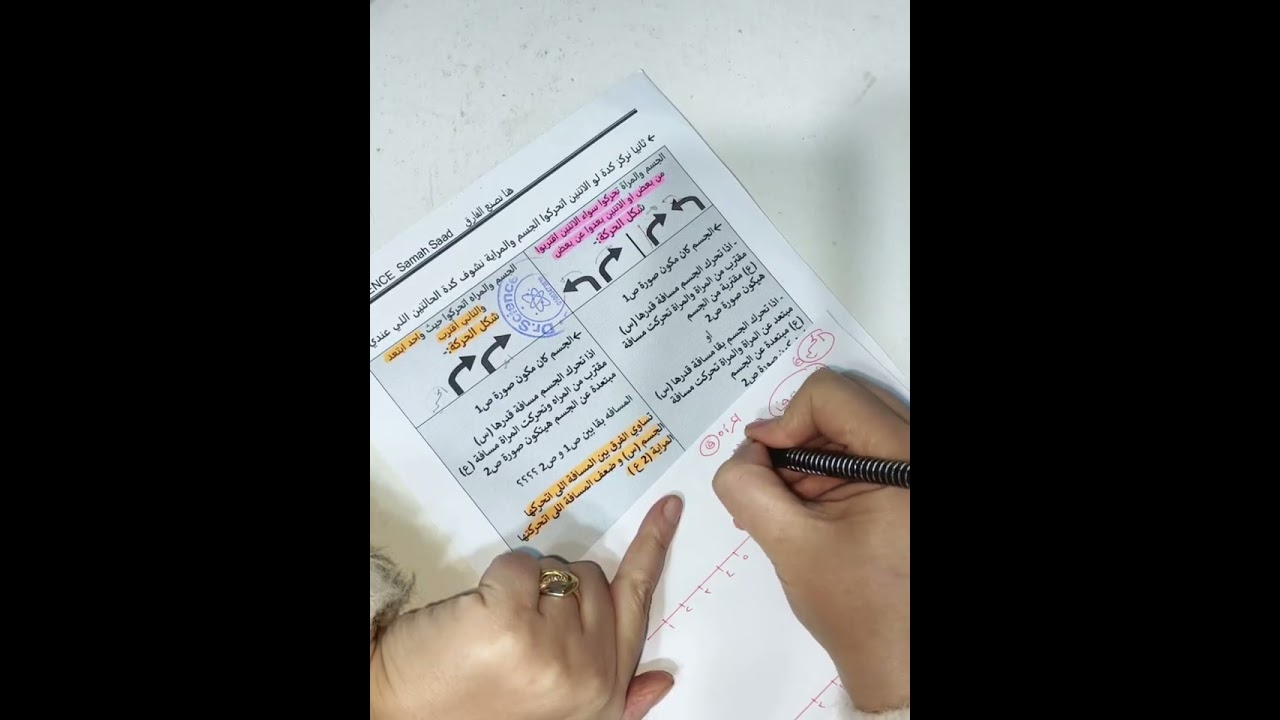 ENCE Samah Saad هنا نصنع الفارق
← ثانيا نركز كدة لو الاتنين اتحركوا الجسم والمراية نشوف كدة الحالتين اللي عندي
الجسم والمراة تحركوا سواء الاتنين اقتربوا
من بعض او الاتنين بعدوا عن بعض
شكل الحركة:-
←الجسم كان مكون صورة ص1
- اذا تحرك الجسم مسافة قدرها (س)
مقترب من المراة والمراة تحركت مسافة
(ع) مقتربة من الجسم
هيكون صورة ص2
او
- اذا تحرك الجسم بقا مسافة قدرها (س)
مبتعد عن المراة والمراة تحركت مسافة
(ع) مبتعدة عن الجسم
صورة ص2
الجسم والمراه اتحركوا حيث واحد ابتعد
والتاني اقترب
شكل الحركة:-
Dr.Science
←الجسم كان مكون صورة ص1
اذا تحرك الجسم مسافة قدرها (س)
مقترب من المراه وتحركت المراة مسافة (ع)
مبتعدة عن الجسم هيتكون صورة ص2
المسافه بقا بين ص1 و ص2 ؟؟؟؟
تساوي الفرق بين المسافة اللي اتحركها
الجسم (س) و ضعف المسافة اللي اتحركتها
المراية (2 ع)
المراه
١ ٢ ٣ ٤ ٥